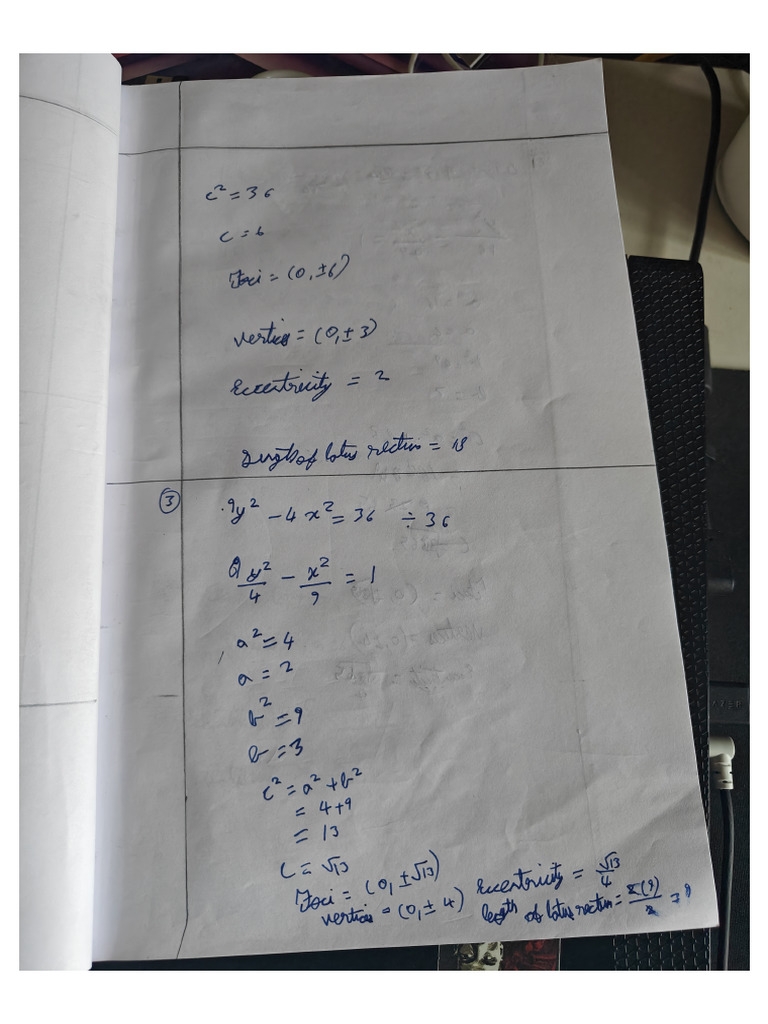 c² = 36
c = 6
Foci = (0, ±6)
vertices = (0, ± 3)
Eccentricity = 2
Length of latus rectum = 18
③ 9y² - 4x² = 36 ÷ 36
y²/4 - x²/9 = 1
a² = 4
a = 2
b² = 9
b = 3
c² = a² + b²
= 4+9
= 13
c = √13
Foci = (0, ±√13)
vertices = (0, ± 4)
Eccentricity = √13/4
length of latus rectum = 2(9)/2 = 9